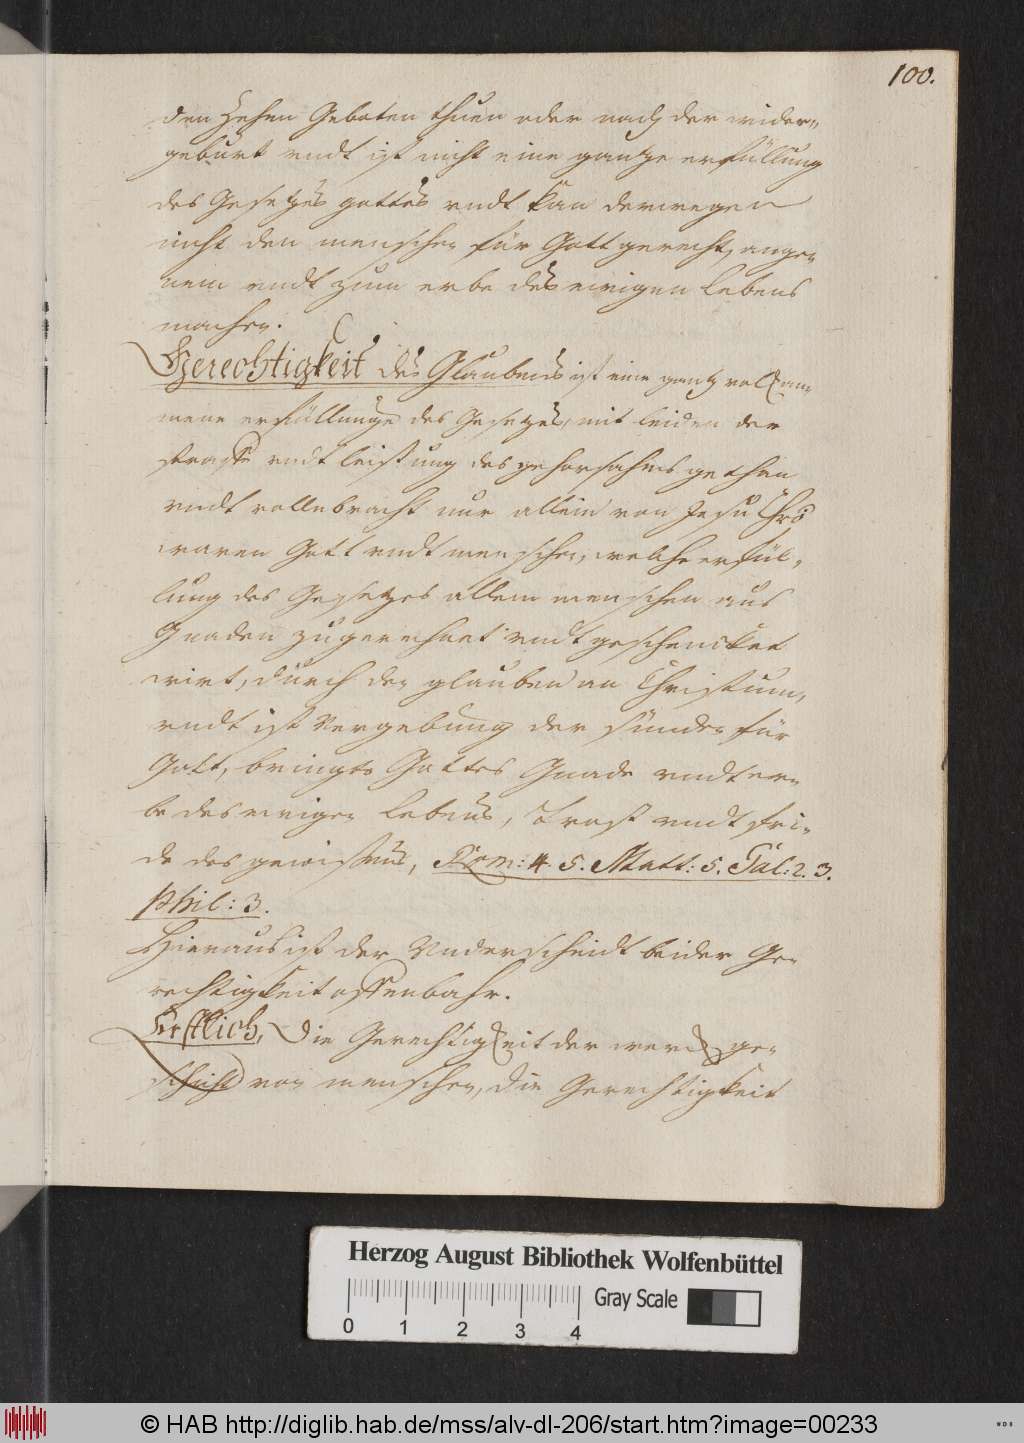 100.
den Zehen Geboten thuen oder nach der wider-
geburt undt ist nicht eine gantze erfüllung
des Gesetzes gottes undt kan derwegen
nicht den menschen für Gott gerecht, ange-
nem undt zum erbe des ewigen lebens
machen.
Gerechtigkeit des Glaubens ist eine gantz volkom-
mene erfüllunge des Gesetzes, mit leiden der
straffe undt leistung des gehorsahms gethan
undt vollnbracht nur allein von Jesu Chro
waren Gott undt menschen, welche erfül-
lung des Gesetzes allein menschen aus
Gnaden zugerechnet undt geschencket
wirt, durch den glauben an Christum,
undt ist Vergebung der sünden für
Gott, bringts Gottes Gnade undt er-
be des ewigen lebens, Trost undt fri-
de des gewissens, Rom: 4. 5. Matt: 5. Gal: 2. 3.
Phil: 3.
Hieraus ist der Underscheidt beider Ge-
rechtigkeit offenbahr.
Erstlich, Die Gerechtigkeit der werck ge-
schicht von menschen, die Gerechtigkeit
Herzog August Bibliothek Wolfenbüttel
Gray Scale
0 1 2 3 4
© HAB http://diglib.hab.de/mss/alv-dl-206/start.htm?image=00233